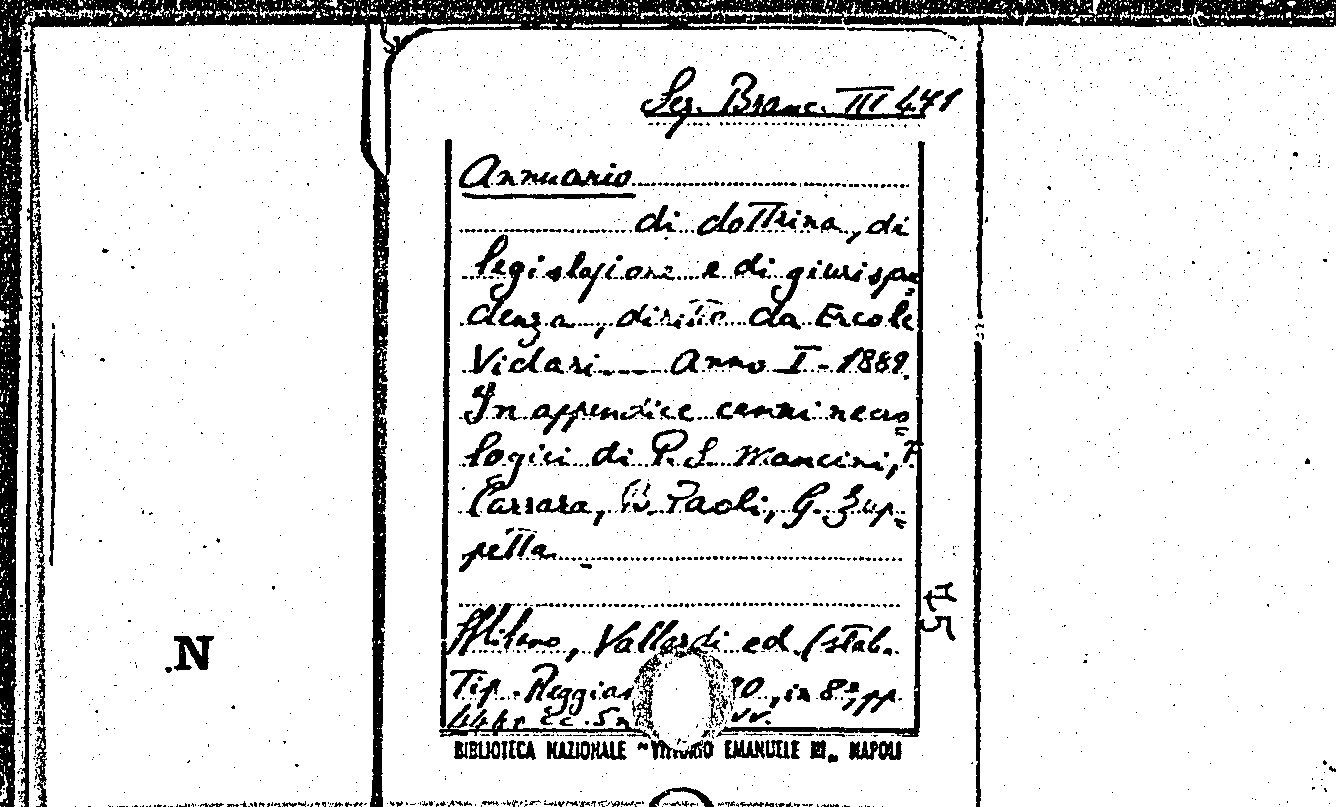 Sez. Branc. III 471
Annuario
di dottrina, di
legislazione e di giurispru=
denza, diretto da Ercole
Vidari. Anno I - 1889.
In appendice cenni necro=
logici di P. S. Mancini, F.
Carrara, B. Paoli, G. Zup=
petta.
Milano, Vallardi ed. (stab.
Tip. Reggian 90, in 8º, pp.
BIBLIOTECA NAZIONALE "VITTORIO EMANUELE III" NAPOLI
15
.N